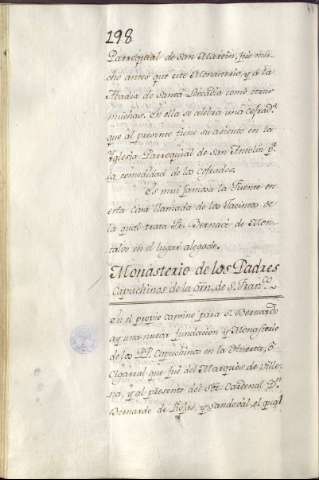 198
Parroquial de San Martin, fue mu-
cho antes que este Monasterio, y a la
Abadia de Santa Leocadia como otras
muchas. En ella se celebra una cofrad.ª
que al presente tiene su asiento en la
Yglesia Parroquial de San Antolin p.ʳ
la comodidad de los Cofrades.
Es mui famosa la Fuente en
esta Casa llamada de los Jacintos de
la qual trata Fr. Bernave de Mon-
talvo en el lugar alegado.
Monasterio de los Padres
Capuchinos de la orn. de S. Fran.ᶜᵒ
En el propio camino para S. Bernardo
ay una nueva fundacion y Monasterio
de los PP. Capuchinos en la Huerta, ò
Cigarral que fue del Marques de Ville-
na, y al presente del Sor. Cardenal Dn.
Bernardo de Rojas, y Sandoval, el qual